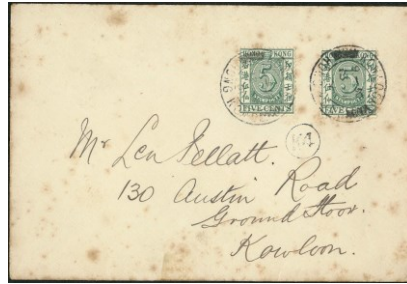 HONG KONG
5
FIVE CENTS
5
FIVE CENTS
K4
Mr Len Pellatt.
130 Austin Road
Ground floor.
Kowloon.